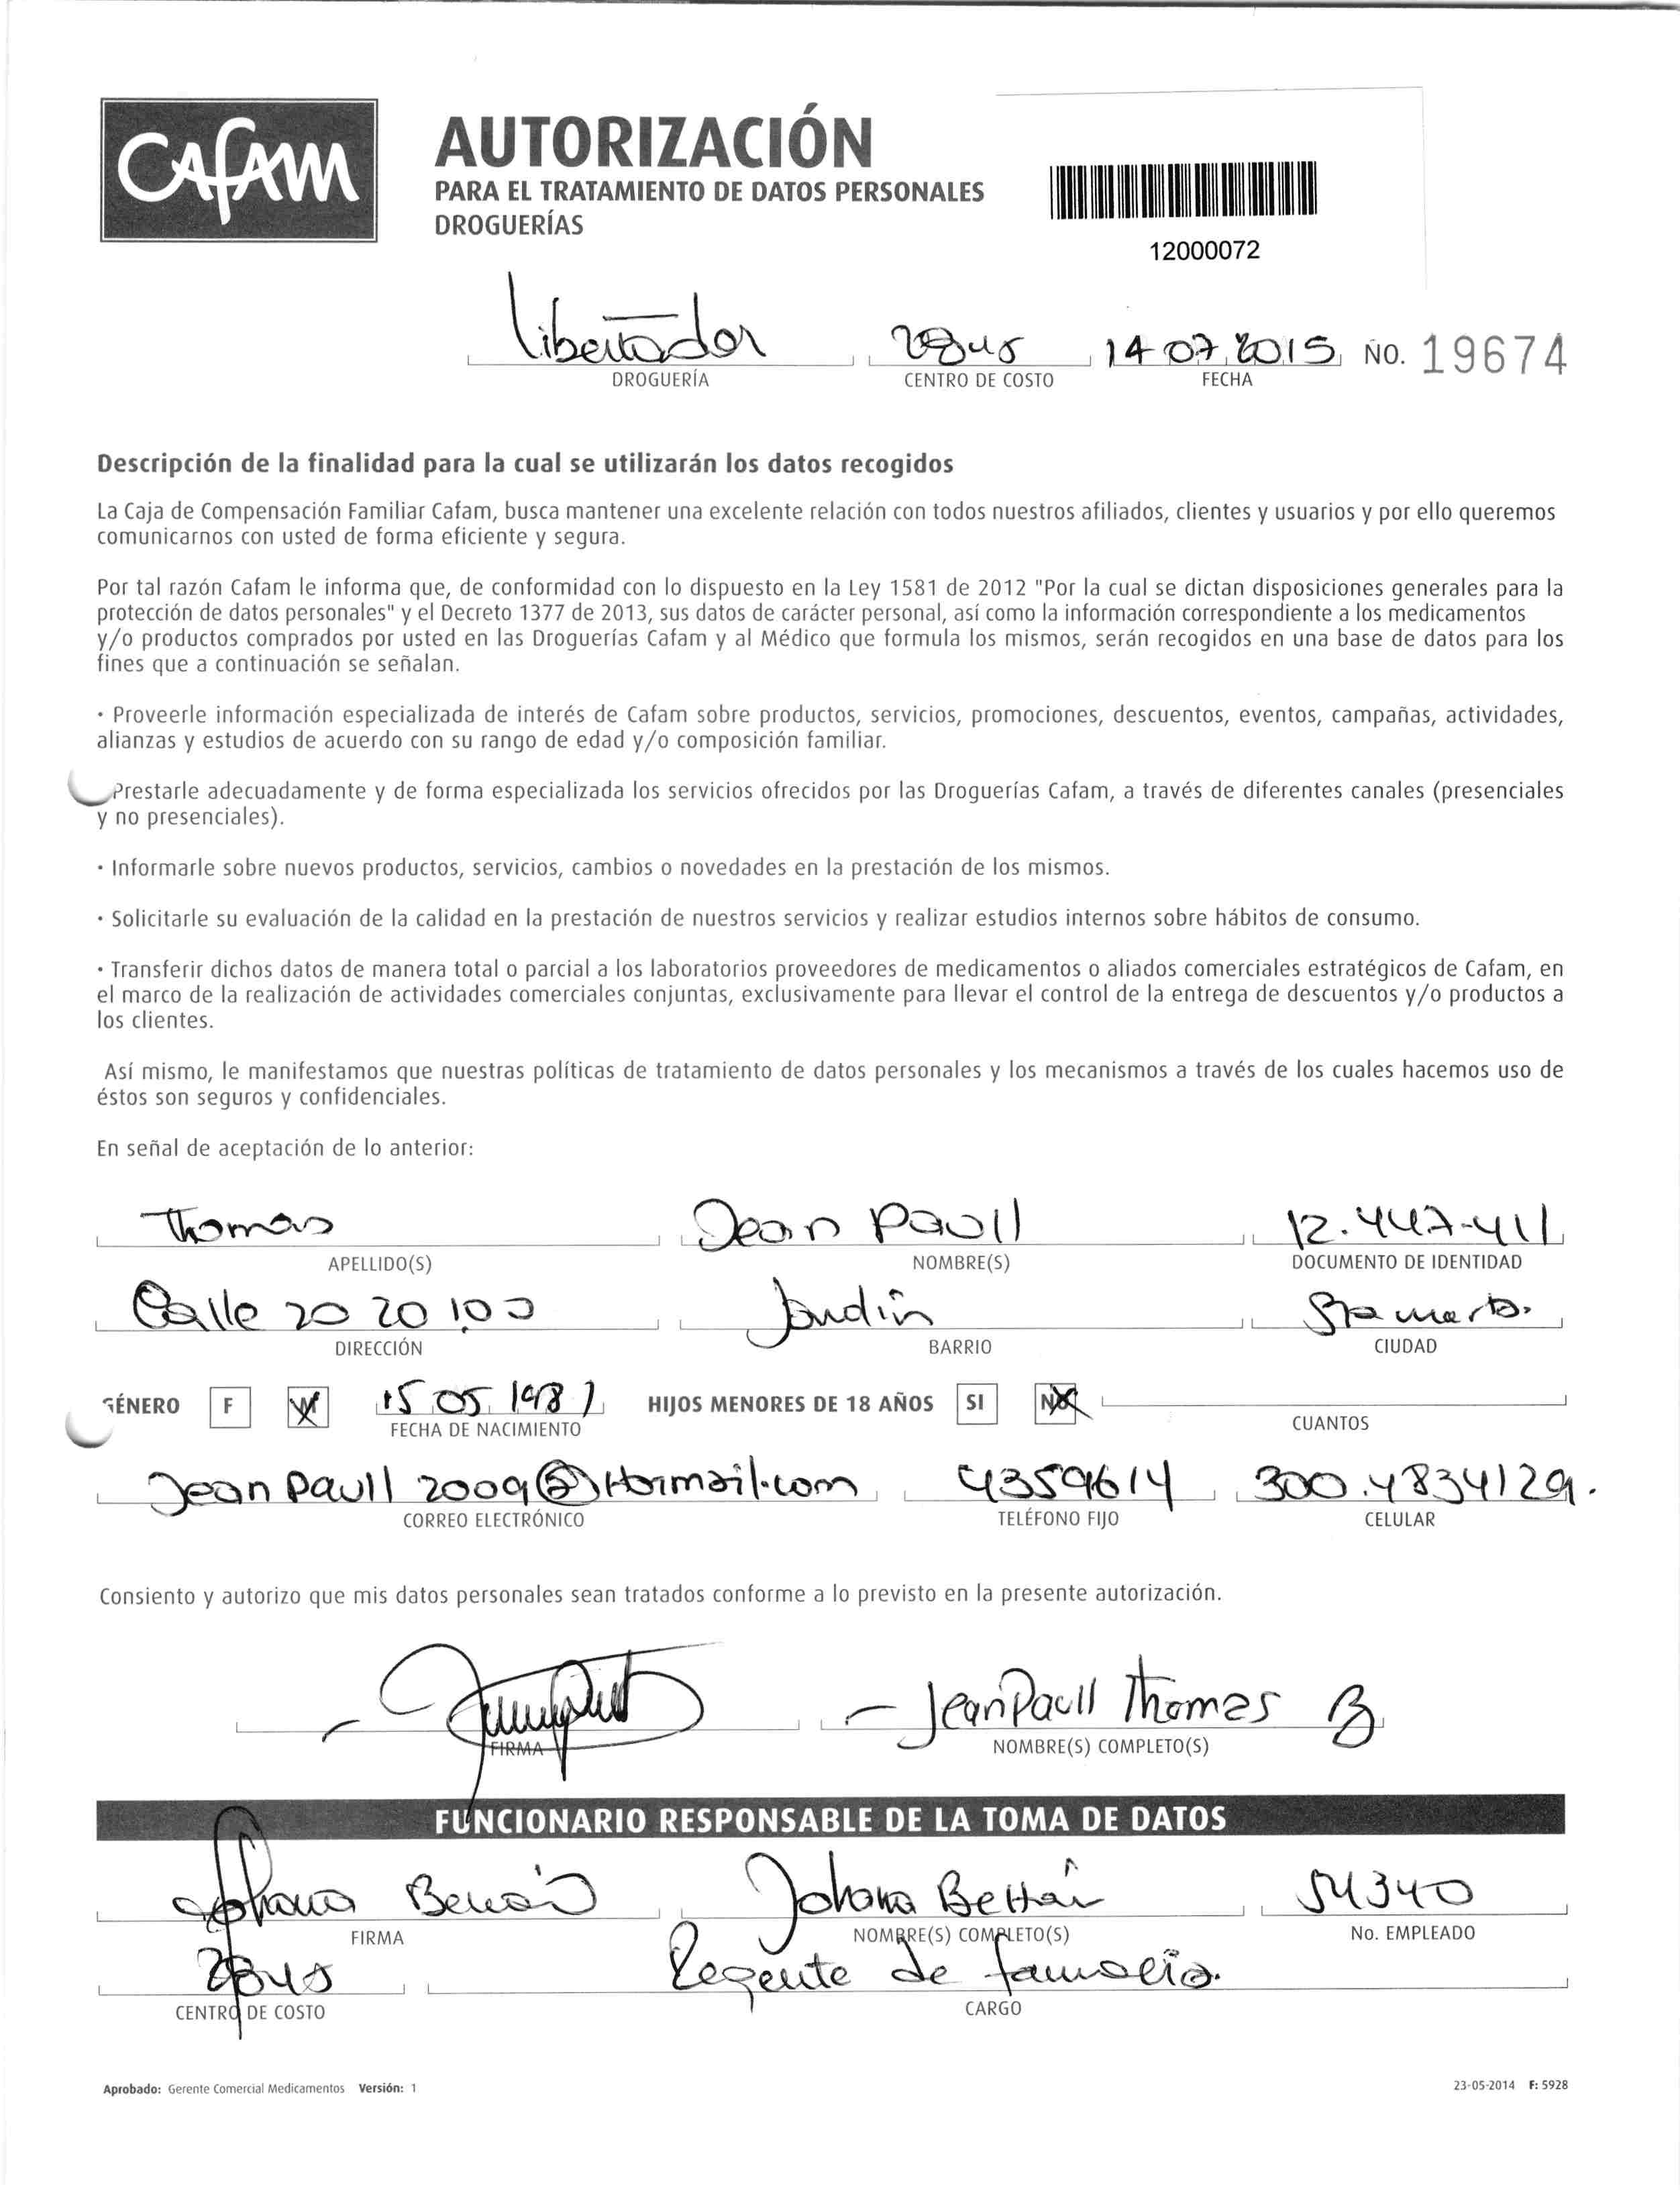 CAFAM
AUTORIZACIÓN
PARA EL TRATAMIENTO DE DATOS PERSONALES
DROGUERÍAS
12000072
Libertador 14 07 2015 No. 19674
DROGUERÍA CENTRO DE COSTO FECHA
Descripción de la finalidad para la cual se utilizarán los datos recogidos
La Caja de Compensación Familiar Cafam, busca mantener una excelente relación con todos nuestros afiliados, clientes y usuarios y por ello queremos
comunicarnos con usted de forma eficiente y segura.
Por tal razón Cafam le informa que, de conformidad con lo dispuesto en la Ley 1581 de 2012 "Por la cual se dictan disposiciones generales para la
protección de datos personales" y el Decreto 1377 de 2013, sus datos de carácter personal, así como la información correspondiente a los medicamentos
y/o productos comprados por usted en las Droguerías Cafam y al Médico que formula los mismos, serán recogidos en una base de datos para los
fines que a continuación se señalan.
· Proveerle información especializada de interés de Cafam sobre productos, servicios, promociones, descuentos, eventos, campañas, actividades,
alianzas y estudios de acuerdo con su rango de edad y/o composición familiar.
Prestarle adecuadamente y de forma especializada los servicios ofrecidos por las Droguerías Cafam, a través de diferentes canales (presenciales
y no presenciales).
· Informarle sobre nuevos productos, servicios, cambios o novedades en la prestación de los mismos.
· Solicitarle su evaluación de la calidad en la prestación de nuestros servicios y realizar estudios internos sobre hábitos de consumo.
· Transferir dichos datos de manera total o parcial a los laboratorios proveedores de medicamentos o aliados comerciales estratégicos de Cafam, en
el marco de la realización de actividades comerciales conjuntas, exclusivamente para llevar el control de la entrega de descuentos y/o productos a
los clientes.
Así mismo, le manifestamos que nuestras políticas de tratamiento de datos personales y los mecanismos a través de los cuales hacemos uso de
éstos son seguros y confidenciales.
En señal de aceptación de lo anterior:
Thomas Jean Paull 12.447.411
APELLIDO(S) NOMBRE(S) DOCUMENTO DE IDENTIDAD
Calle 20 20 100 Jardín Sta marta.
DIRECCIÓN BARRIO CIUDAD
GÉNERO F M 15 05 1981 HIJOS MENORES DE 18 AÑOS SI NO
FECHA DE NACIMIENTO CUANTOS
Jean paull 2009@Hotmail.com 4359614 300.4834129.
CORREO ELECTRÓNICO TELÉFONO FIJO CELULAR
Consiento y autorizo que mis datos personales sean tratados conforme a lo previsto en la presente autorización.
Jean Paull Thomas B
FIRMA NOMBRE(S) COMPLETO(S)
FUNCIONARIO RESPONSABLE DE LA TOMA DE DATOS
Johana Beltrán Johana Beltrán 54340
FIRMA NOMBRE(S) COMPLETO(S) No. EMPLEADO
Regente de farmacia.
CENTRO DE COSTO CARGO
Aprobado: Gerente Comercial Medicamentos Versión: 1 23-05-2014 F: 5928